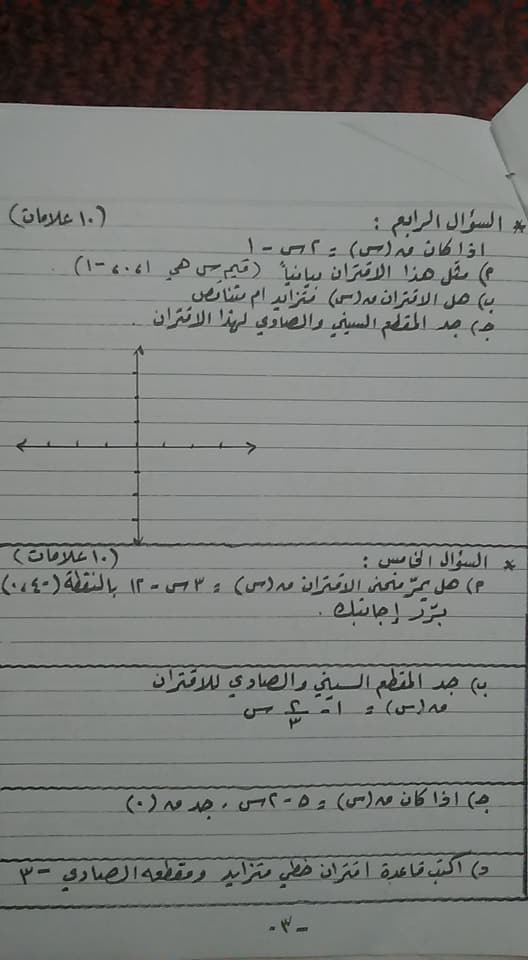 * السؤال الرابع : (١٠ علامات)
اذا كان ق(س) = ٢س - ١
أ) مثّل هذا الاقتران بيانياً (قيم س هي ١ ، ٠ ، -١) .
ب) هل الاقتران ق(س) متزايد ام متناقص
جـ) جد المقطع السيني والصادي لهذا الاقتران .
* السؤال الخامس : (١٠ علامات)
أ) هل يمرّ منحنى الاقتران ق(س) = ٣س - ١٢ بالنقطة (-٤ ، ٠)
برّر إجابتك .
ب) جد المقطع السيني والصادي للاقتران
ق(س) = ١ - ٢/٣ س
جـ) اذا كان ق(س) = ٥ - ٢س ، جد ق(٠)
د) اكتب قاعدة اقتران خطي متزايد ومقطعه الصادي -٣
-٣-